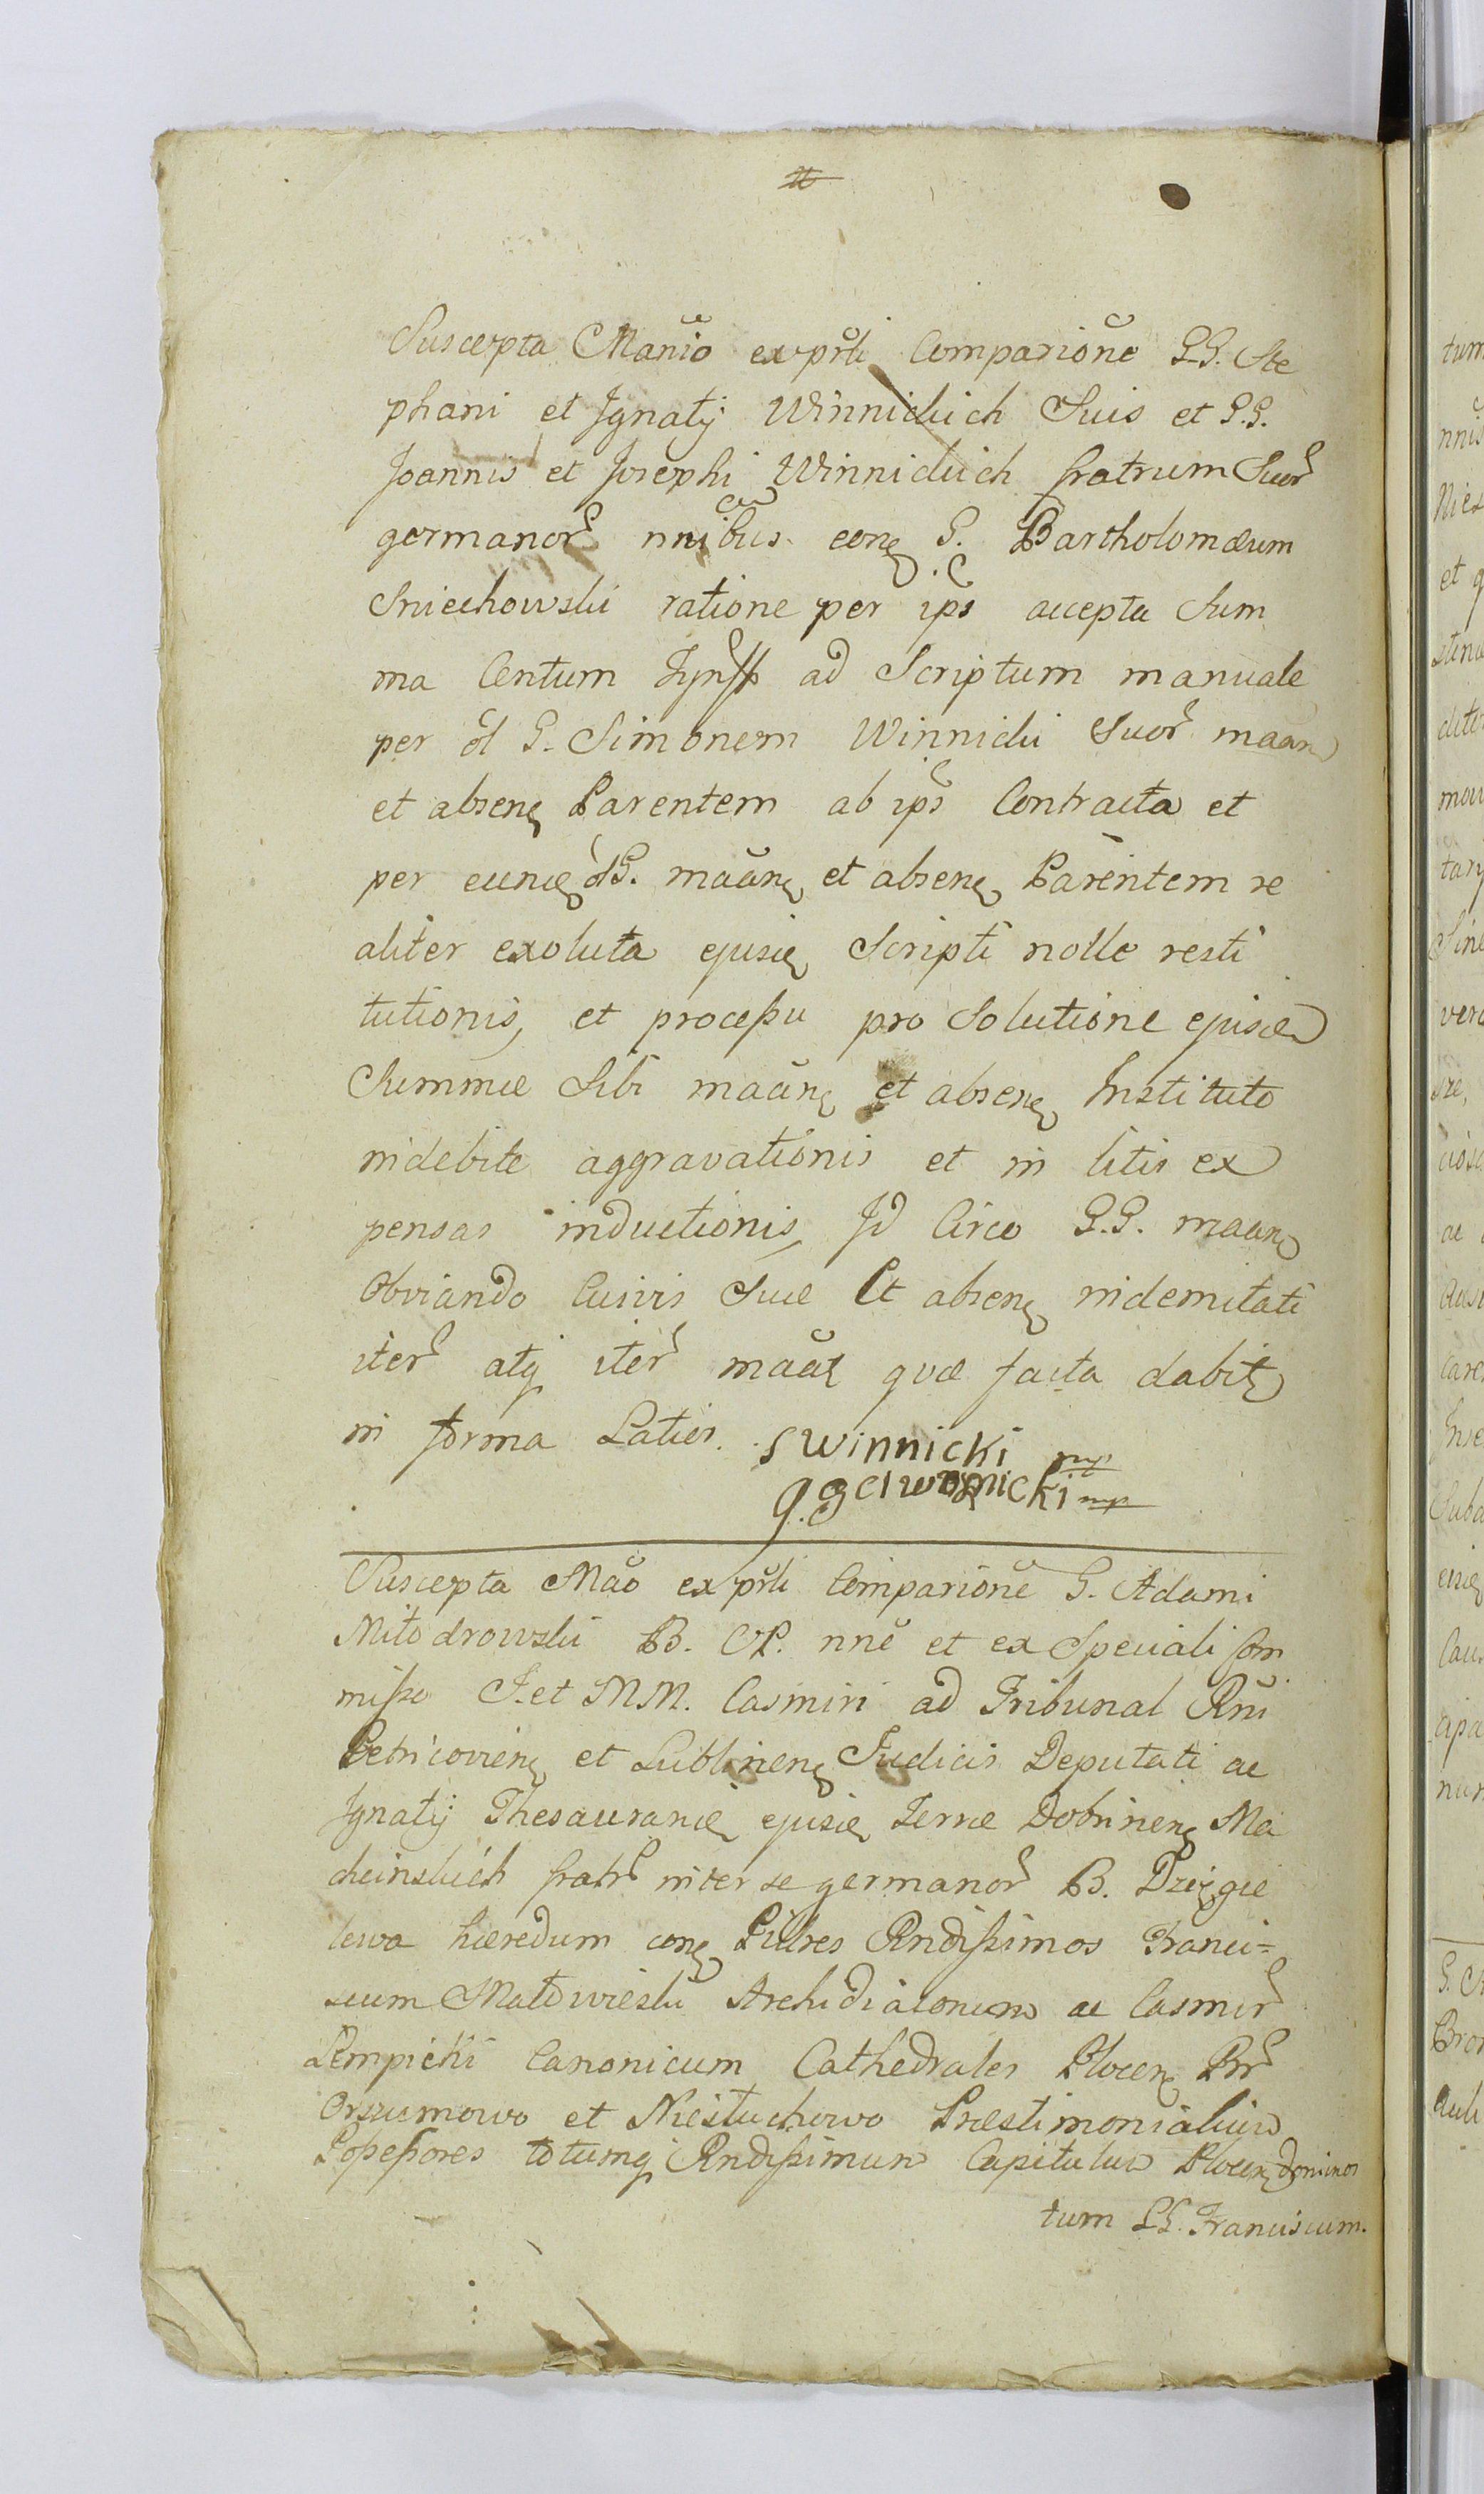 Suscepta Manio ex prti Comparione GG. Ste
phani et Ignatij Winnickich Suis et G.G.
Joannis et Josephi Winnickich fratrum Suor
germanor nnibus cong G. Bartholomæum
Sniechowski ratione per ips accepta Sum
ma Centum Tynff ad Scriptum manuale
per ol G. Simonem Winnicki Suor maan
et absen Parentem ab ips Contracta et
per eund olG. maan et absen Parentem re
aliter exoluta ejusd Scripti nolle resti
tutionis, et processu pro Solutione ejusd
Summæ Sibi maan et absen Instituto
indebite aggravationis et in litis ex
pensas inductionis, Id Circo G.G. maan
Obviando Cuivis Suæ Et absen indemitati
iter atq iter maat quæ facta dabit
in forma Latior. S Winnicki mp
mp
Suscepta Mao ex prti Comparione G. Adami
Miłodrowski B. CP. nne et ex Speciali Com
misso J. et MM. Casimiri ad Tribunal Rni
Petricovien et Lublinen Judicis Deputati ac
Ignatij Thesaurarid ejusd Terræ Dobrinen Ma
cheinskich fratr inter se germanor B. Dzięgie
lewo hæredum cong Pllres Rndissimos Franci=
scum Małowieski Archidiaconum ac Casimir
Lempicki Canonicum Cathedrales Plocen Brr
Orszumowo et Niesłuchowo Præstimonialium
Possessores totumq Rndissimum Capitulum Plocen Dominos
tum GG. Franciscum.